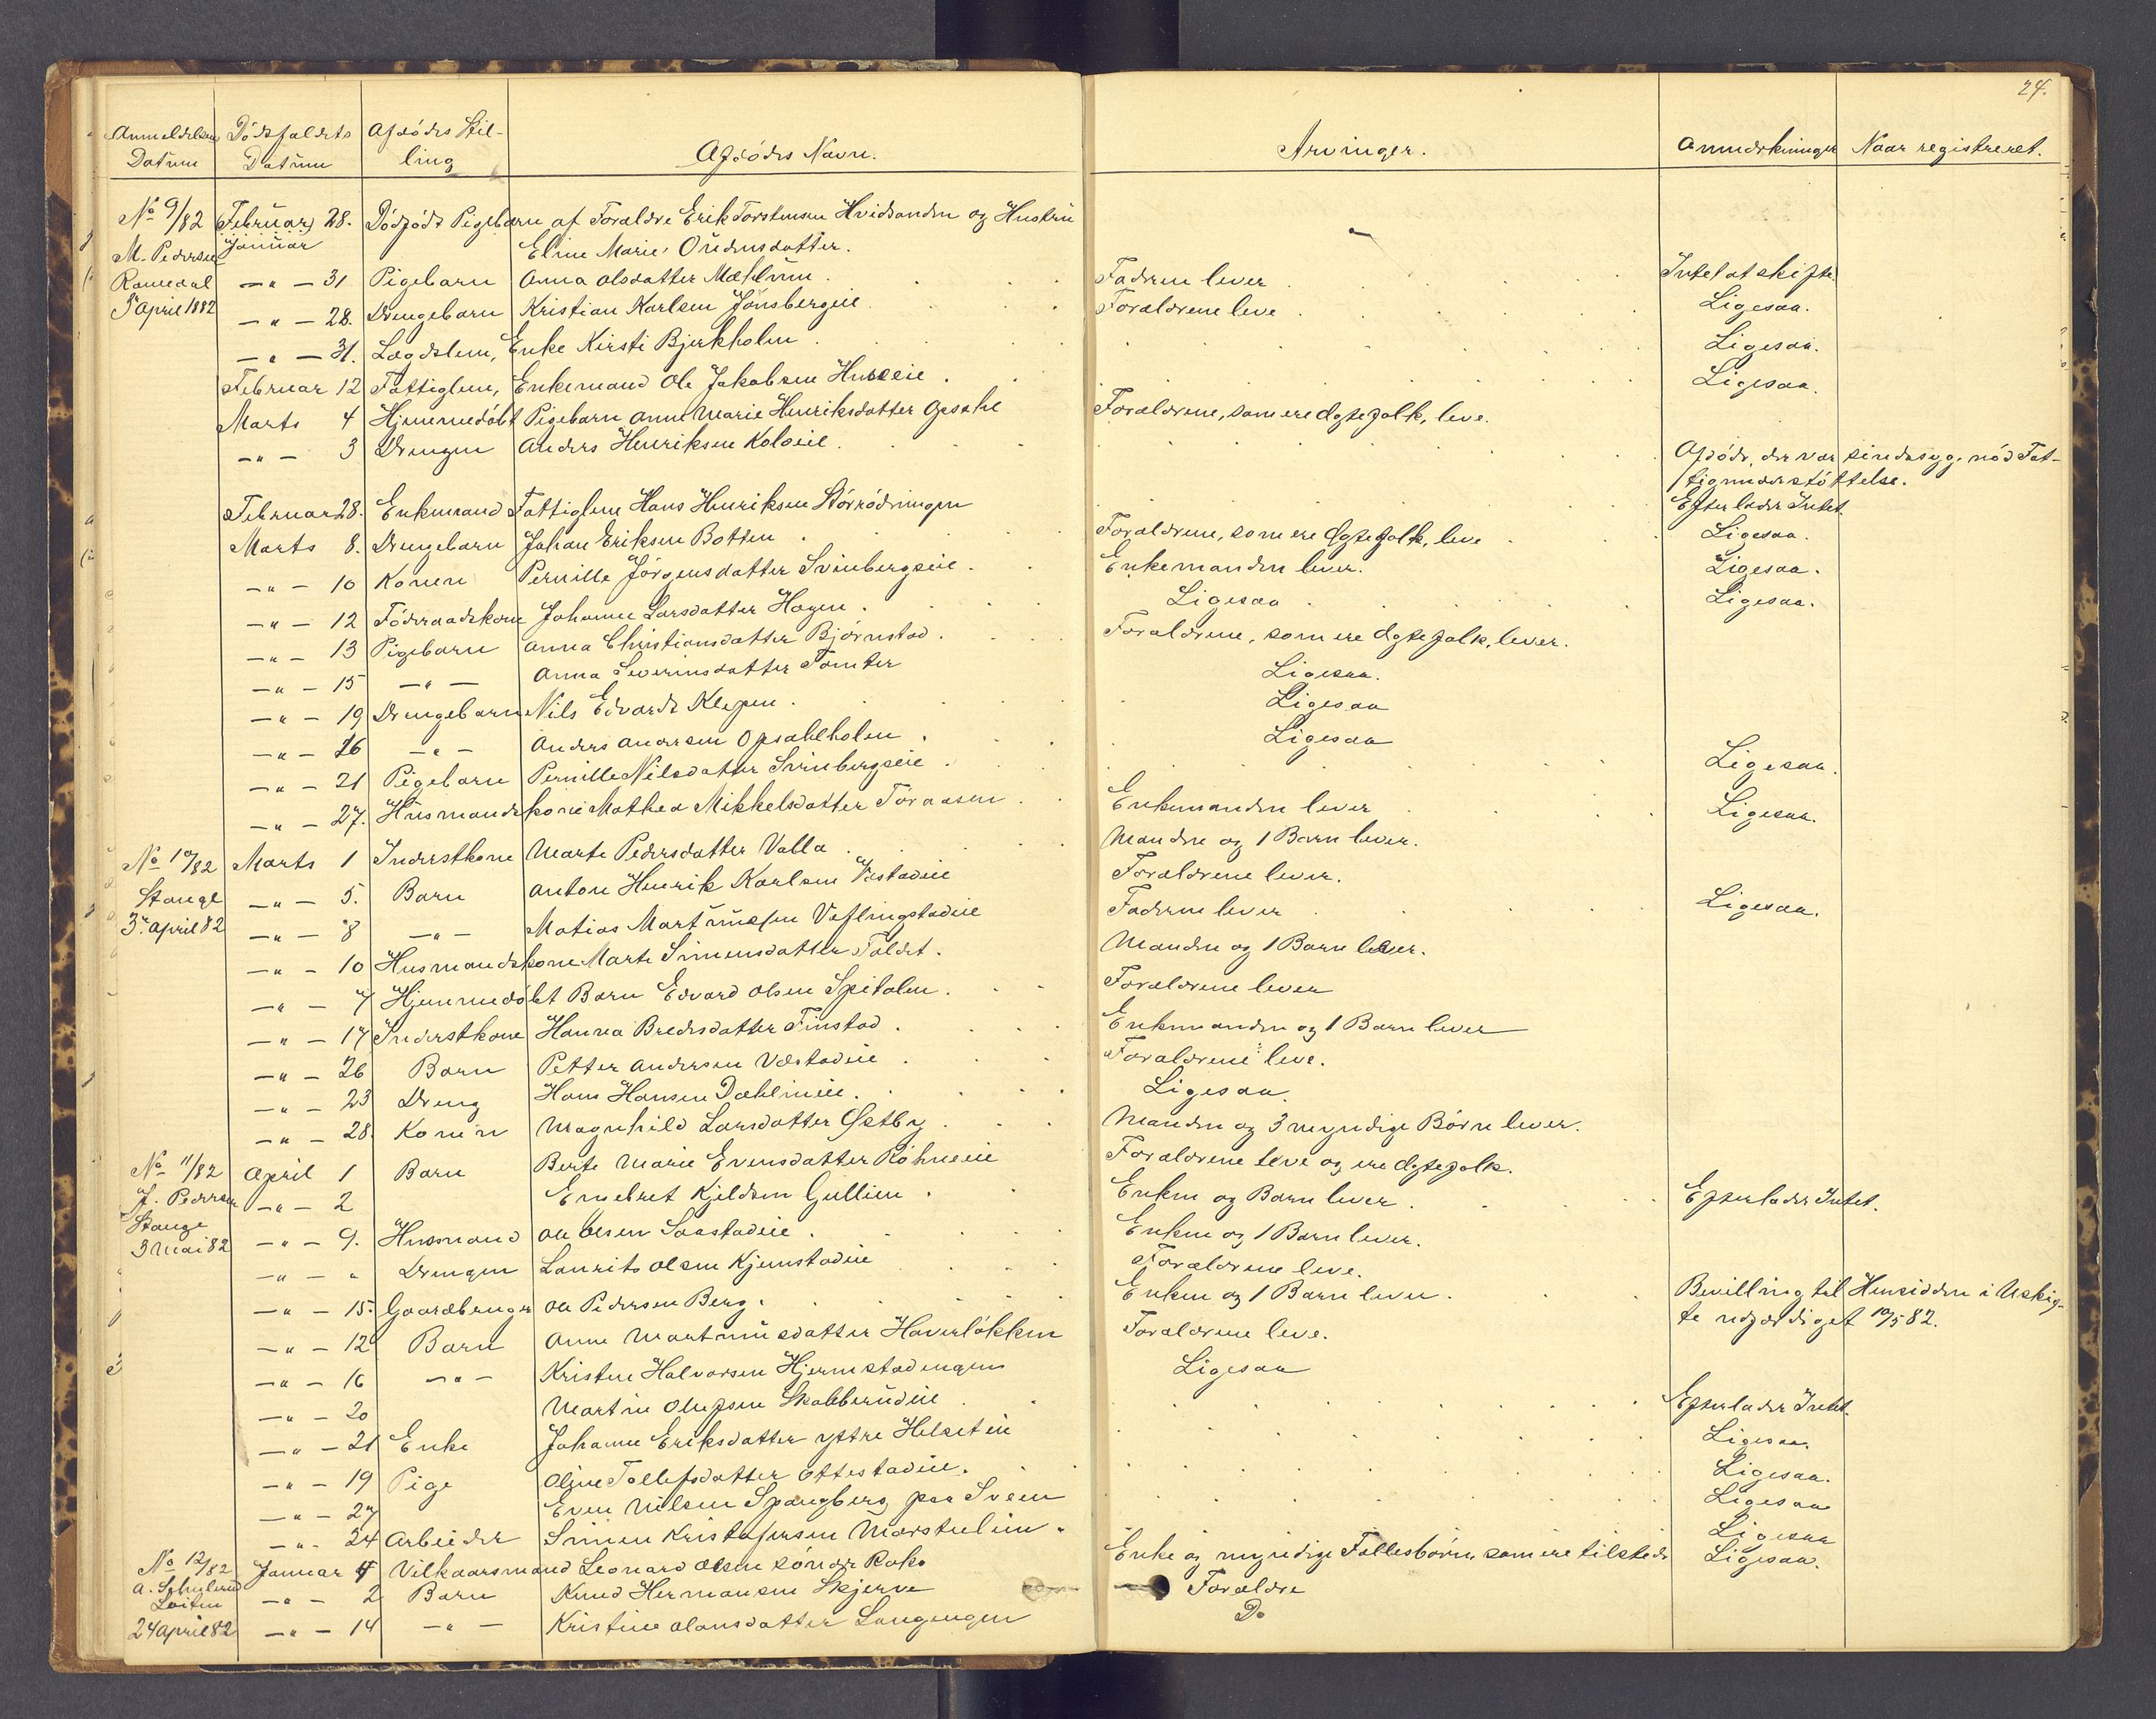 24.
Anmeldelsens Datum Dödsfaldets Datum Afdödes Stilling Afdödes Navn. Arvinger. Anmærkninger Naar registreret.
No 9/82 Februar 28. Dödfödt Pigebarn af Forældre Erik Torstensen Hvidsanden og Hustru
M. Pedersen Januar Eline Marie Oudensdatter.
Romedal — " — 31 Pigebarn Anna Olsdatter Mæhlum. Faderen lever Intet at skifte
3 April 1882 — " — 28. Drengebarn Kristian Karlsen Jönsbergeie Forældrene leve Ligesaa.
— " — 31. Lægdslem, Enke Kirsti Bjerkholen Ligesaa.
Februar 12 Fattiglem, Enkemand Ole Jakobsen Huseeie Ligesaa.
Marts 4 Hjemmedöbt Pigebarn Anne Marie Henriksdatter Opsahl Forældrene, som ere Ægtefolk, leve.
— " — 3 Drengen Anders Henriksen Koloeie Afdöde, der var sindssyg, nöd Fat-
tigunderstöttelse.
Februar 28. Enkemand Fattiglem Hans Henriksen Störrödningen Efterlader Intet.
Marts 8. Drengebarn Johan Eriksen Botten Forældrene, som ere Ægtefolk, leve Ligesaa.
— " — 10 Konen Pernille Jörgensdatter Svinbergseie Enkemanden lever. Ligesaa.
— " — 12 Föderaadskone Johanne Larsdatter Hagen. Ligesaa Ligesaa.
— " — 13 Pigebarn Anna Christiansdatter Björnstad. Forældrene, som ere Ægtefolk, lever.
— " — 15 — " — Anna Severinsdatter Tomter Ligesaa.
— " — 19 Drengebarn Nils Edvards Klepen. Ligesaa
— " — 26 — " — Anders Andersen Opsahlholen. Ligesaa
— " — 21 Pigebarn Pernille Nilsdatter Svinbergseie Ligesaa.
— " — 27. Husmandskone Mathea Mikkelsdatter Toraasen Enkemanden lever Ligesaa.
No 10/82 Marts 1 Inderstkone Marte Pedersdatter Valla Manden og 1 Barn lever.
Stange — " — 5. Barn Anton Henrik Karlsen Vestadeie Forældrene lever.
3 April 82 — " — 8 — " — Matias Martinusen Veflingstadeie Faderen lever Ligesaa.
— " — 10 Husmandskone Marte Simensdatter Toldet. Manden og 1 Barn lever.
— " — 7 Hjemmedöbt Barn Edvard Olsen Spitalen. Forældrene lever
— " — 17 Inderstkone Hanna Bredesdatter Finstad. Enkemanden og 1 Barn lever
— " — 26 Barn Petter Andersen Vestadeie Forældrene leve.
— " — 23 Dreng Hans Hansen Dæhlineie. Ligesaa.
— " — 28. Konen Magnhild Larsdatter Østby Manden og 3 myndige Börn lever.
No 11/82 April 1 Barn Berte Marie Evensdatter Röhneeie Forældrene leve og ere Ægtefolk.
J. Pedersen — " — 2 Engebret Kjeldsen Gullien. Enken og Barn lever. Efterlader Intet.
Stange — " — 9. Husmand Ole Olsen Saastadeie. Enken og 1 Barn lever.
3 Mai 82 — " — " Drengen Laurits Olsen Kjemstadeie Forældrene leve.
— " — 15. Gaardbruger Ole Pedersen Berg. Enken og 1 Barn lever. Bevilling til Hensidden i Uskif-
— " — 12 Barn Anne Martinusdatter Haverlökken Forældrene leve. te udfærdiget 10/5 82.
— " — 16 — " — Kristen Halvorsen Hjermstadengen Ligesaa
— " — 20 Martin Olufsen Skabberudeie Efterlader Intet.
— " — 21 Enke Johanne Eriksdatter yttre Helseteie Ligesaa.
— " — 19 Pige Oline Tollefsdatter Ottestadeie. Ligesaa.
— " — 27 Even Nilsen Spangberg paa Sveen Ligesaa
— " — 24 Arbeider Simen Kristofersen Marstulien. Ligesaa
No 12/82 Januar 4 Vilkaarsmand Leonard Olsen söndre Roko Enke og myndige Fællesbörn, som ere tilstede Ligesaa.
A. Löiten — " — 2 Barn Knud Hermansen Skjerve Forældre
24 April 82 — " — 14 — " — Kristine Olausdatter Langengen Do